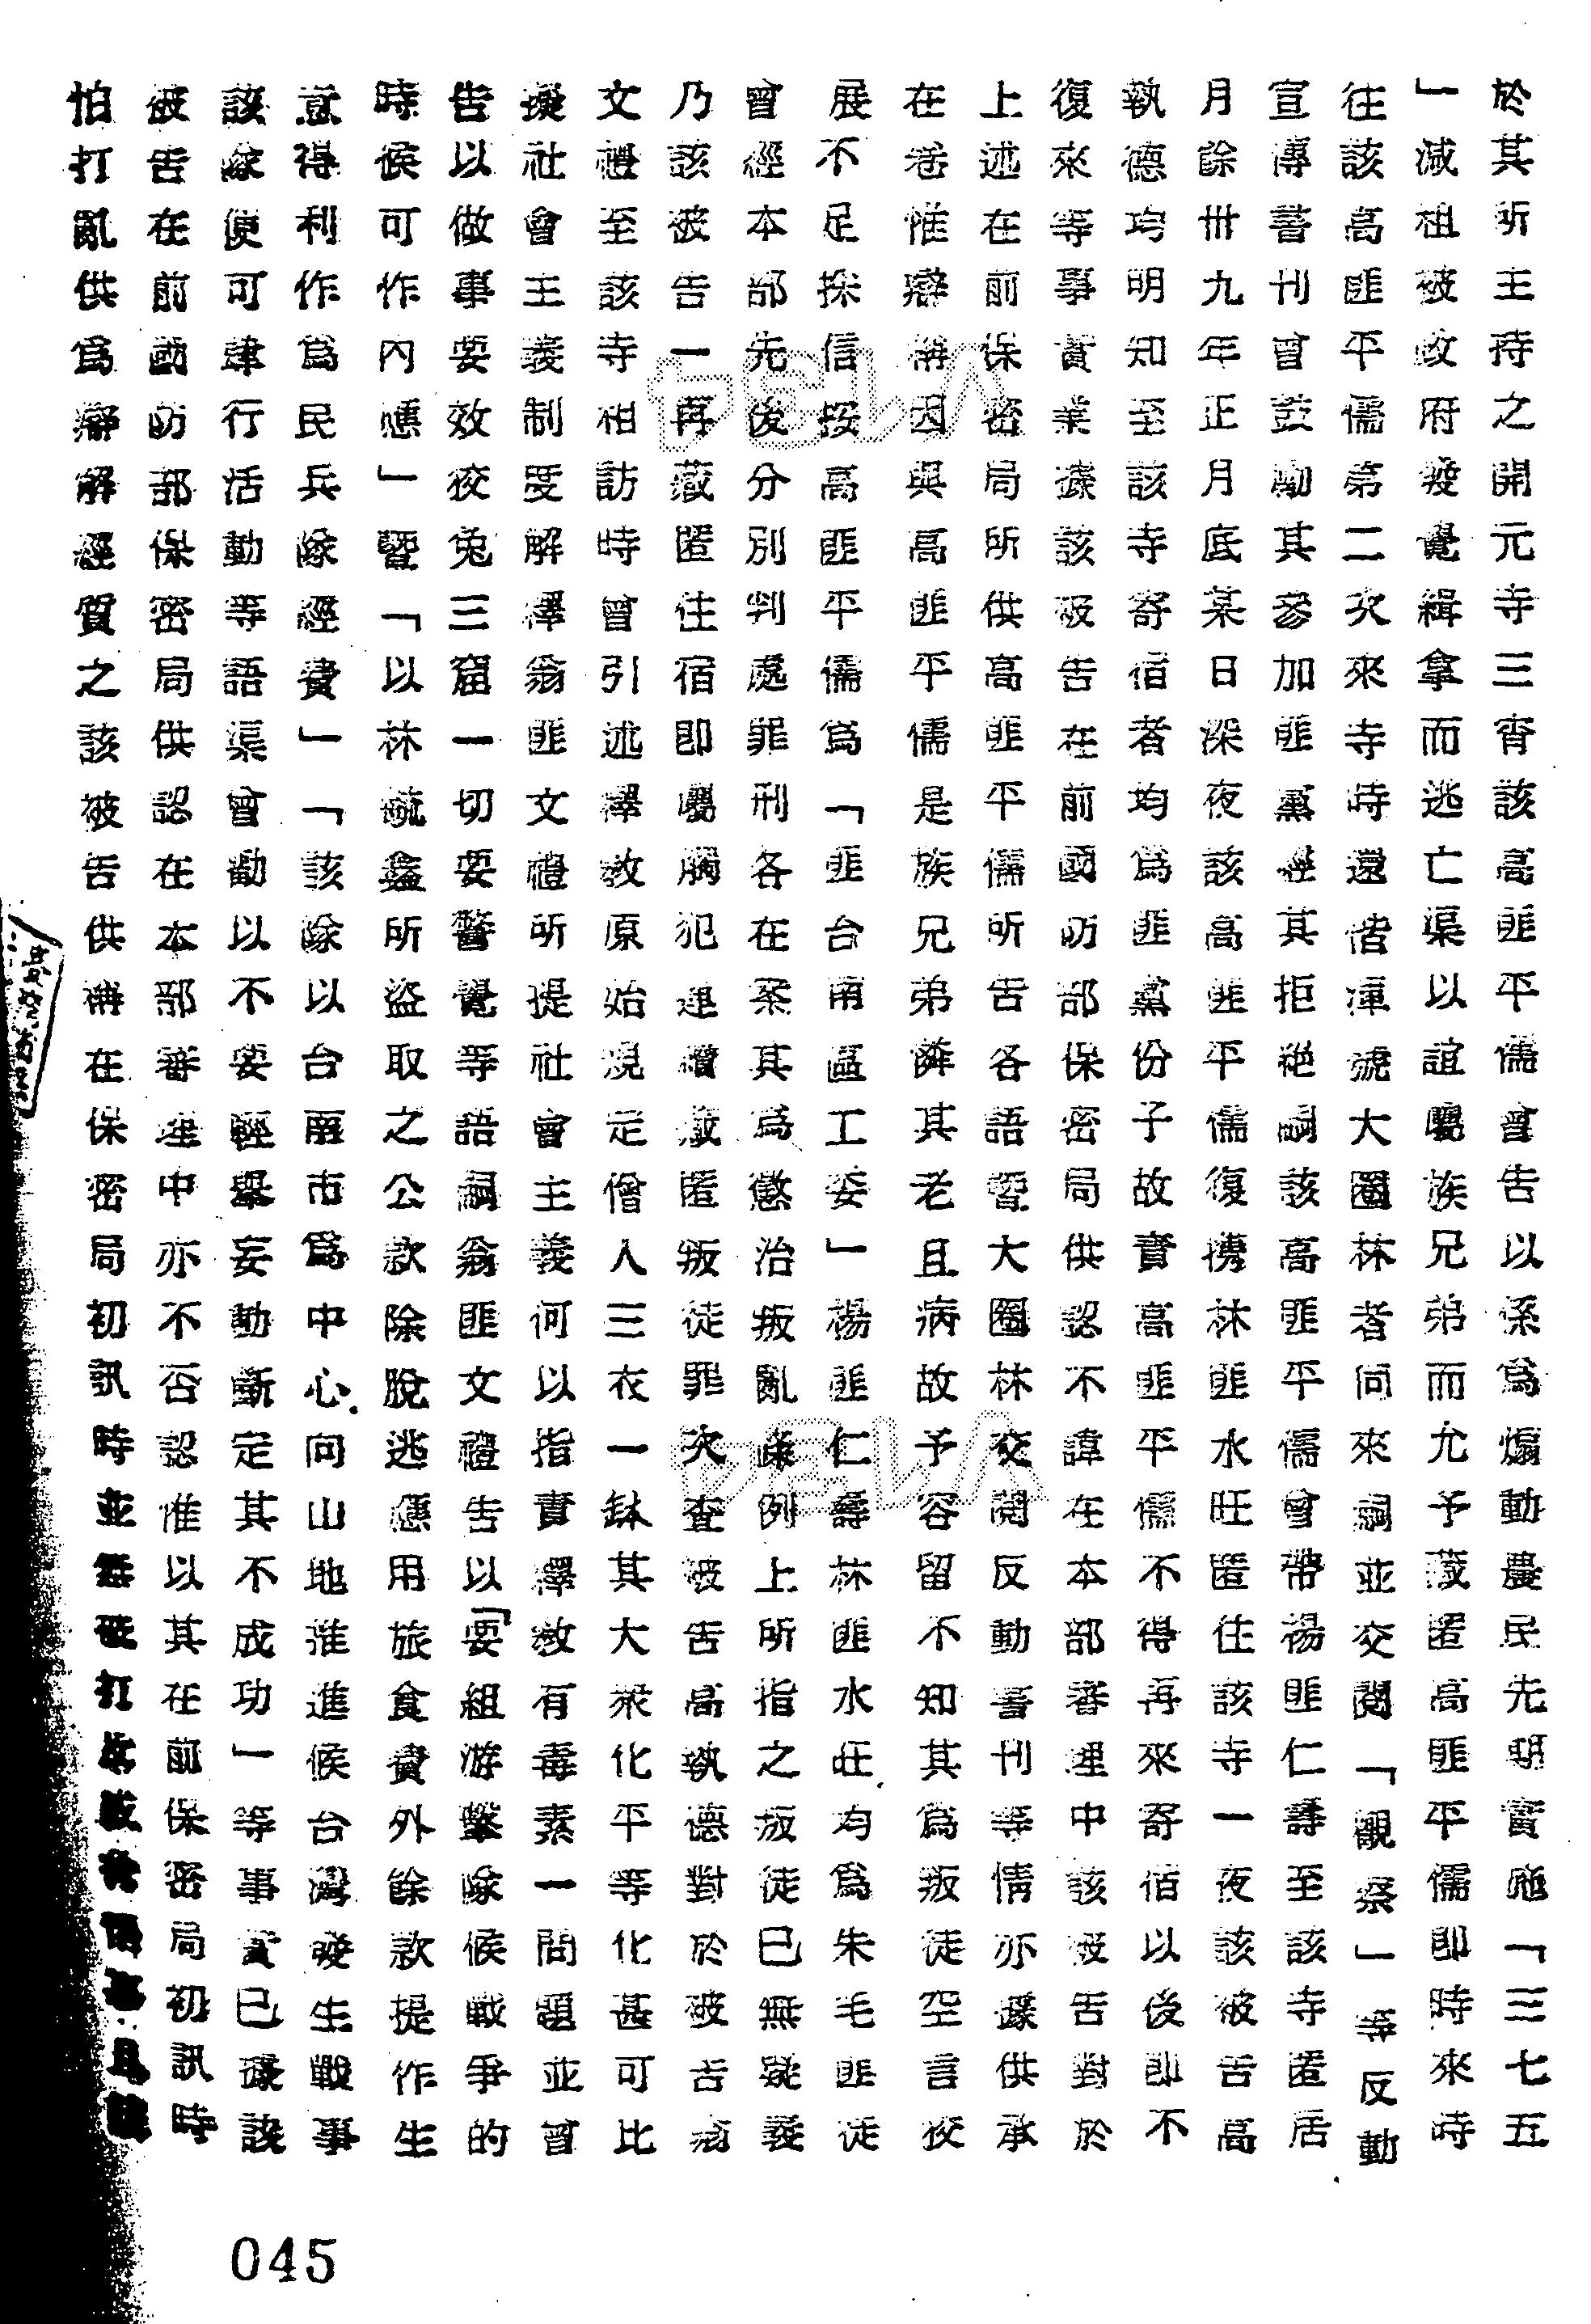 於其所主持之開元寺三宵該高匪平儒曾告以係為煽動農民先明實施「三七五
」減租被政府發覺緝拿而逃亡渠以誼屬族兄弟而允予藏匿高匪平儒即時來時
往該高匪平儒第二次來寺時還偕渾號大圈林者同來詞並交閱「觀察」等反動
宣傳書刊曾鼓勵其參加匪黨經其拒絕嗣該高匪平儒曾帶楊匪仁壽至該寺匿居
月餘卅九年正月底某日深夜該高匪平儒復携林匪水旺匿住該寺一夜該被告高
執德均明知至該寺寄宿者均為匪黨份子故責高匪平儒不得再來寄宿以後即不
復來等事實業據該被告在前國防部保密局供認不諱在本部審理中該被告對於
上述在前保密局所供高匪平儒所告各語暨大圈林交閱反動書刊等情亦據供承
在卷惟辯稱因與高匪平儒是族兄弟隣其老且病故予容留不知其為叛徒空言狡
展不足採信按高匪平儒為「匪台南區工委」楊匪仁壽林匪水旺均為朱毛匪徒
曾經本部先後分別判處罪刑各在案其為懲治叛亂條例上所指之叛徒已無疑義
乃該被告一再藏匿住宿即屬觸犯連續藏匿叛徒罪次查被告高執德對於被告翁
文禮至該寺相訪時曾引述釋教原始規定僧人三衣一鉢其大衆化平等化甚可比
擬社會主義制度解釋翁匪文禮所提社會主義何以指責釋教有毒素一問題並曾
告以做事要效狡兔三窟一切要警覺等語詞翁匪文禮告以「要組游擊隊候戰爭的
時候可作內應」暨「以林毓鑫所盜取之公款除脫逃應用旅食費外餘款提作生
意得利作為民兵隊經費」「該隊以台南市為中心向山地推進候台灣發生戰事
該隊便可肆行活動等語渠曾勸以不妥輕舉妄動斷定其不成功」等事實已據該
被告在前國防部保密局供認在本部審理中亦不否認惟以其在前保密局初訊時
怕打亂供為辯解經質之該被告供稱在保密局初訊時並無被打
045